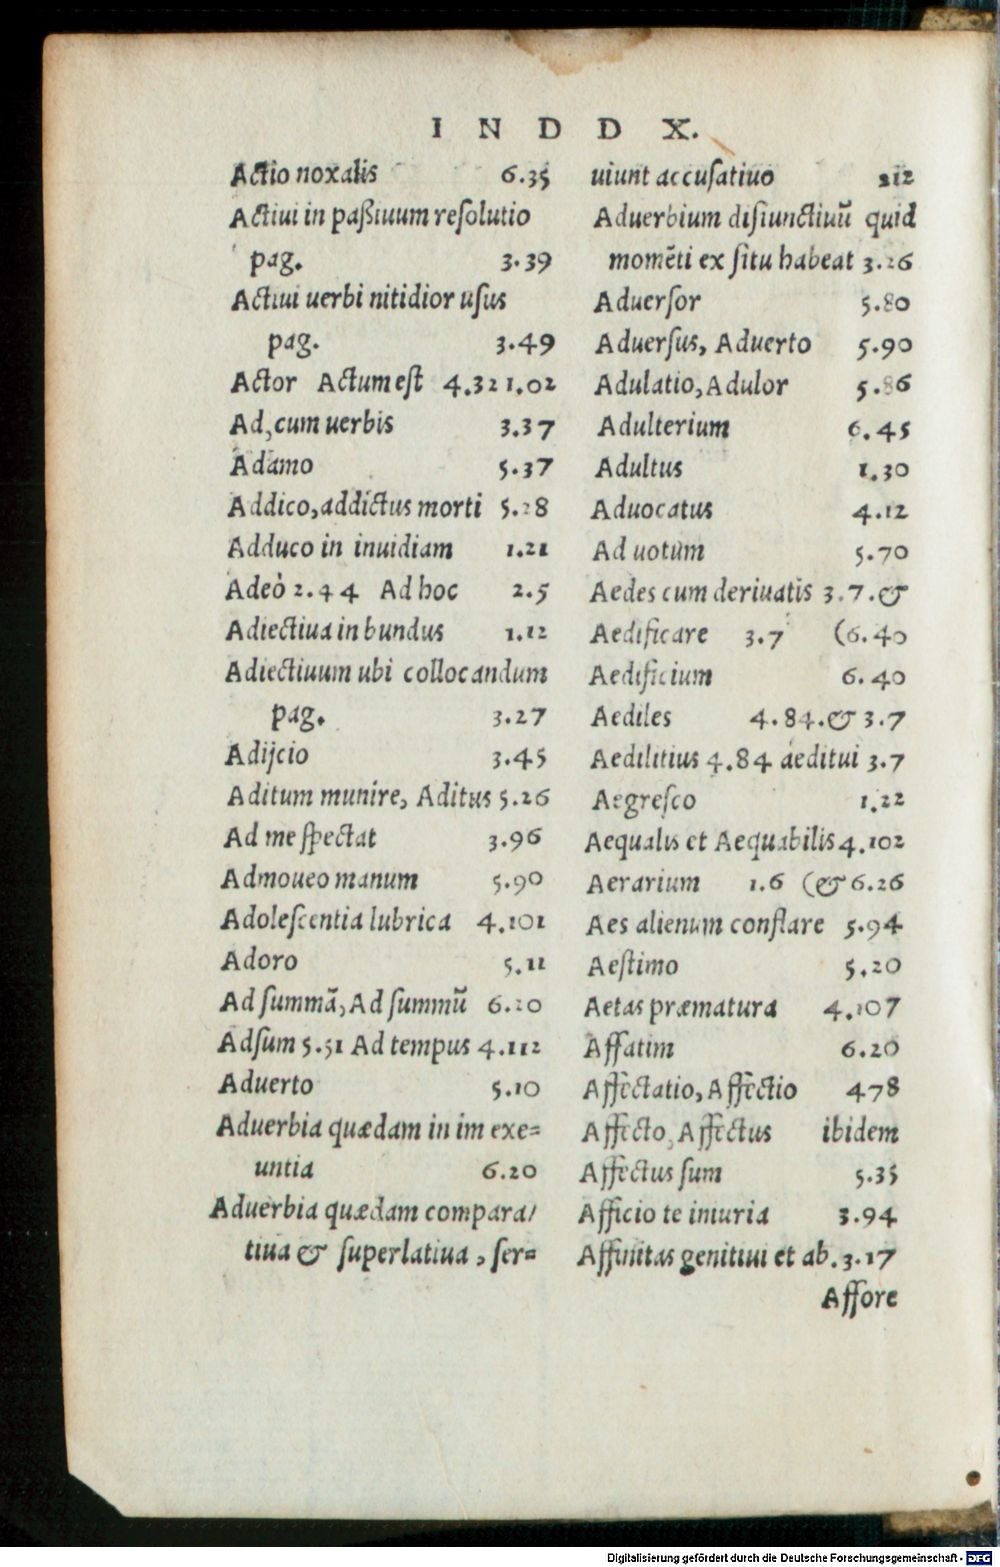 I N D D X.
Actio noxalis 6.35
Actiui in paßiuum reſolutio
pag. 3.39
Actiui uerbi nitidior uſus
pag. 3.49
Actor Actum eſt 4.321.02
Ad, cum uerbis 3.37
Adamo 5.37
Addico, addictus morti 5.28
Adduco in inuidiam 1.21
Adeò 2.44 Ad hoc 2.5
Adiectiua in bundus 1.12
Adiectiuum ubi collocandum
pag. 3.27
Adijcio 3.45
Aditum munire, Aditus 5.26
Ad me ſpectat 3.96
Admoueo manum 5.90
Adoleſcentia lubrica 4.101
Adoro 5.11
Ad ſummā, Ad ſummū 6.20
Adſum 5.51 Ad tempus 4.112
Aduerto 5.10
Aduerbia quædam in im exe=
untia 6.20
Aduerbia quædam compara/
tiua & ſuperlatiua, ſer=
uiunt accuſatiuo 212
Aduerbium diſiunctiuū quid
momēti ex ſitu habeat 3.26
Aduerſor 5.80
Aduerſus, Aduerto 5.90
Adulatio, Adulor 5.86
Adulterium 6.45
Adultus 1.30
Aduocatus 4.12
Ad uotum 5.70
Aedes cum deriuatis 3.7.&
Aedificare 3.7 (6.40
Aedificium 6.40
Aediles 4.84.& 3.7
Aedilitius 4.84 aeditui 3.7
Aegreſco 1.22
Aequalis et Aequabilis 4.102
Aerarium 1.6 (& 6.26
Aes alienum conflare 5.94
Aeſtimo 5.20
Aetas præmatura 4.107
Affatim 6.20
Affectatio, Affectio 478
Affecto, Affectus ibidem
Affectus ſum 5.35
Afficio te iniuria 3.94
Affinitas genitiui et ab. 3.17
Affore
Digitalisierung gefördert durch die Deutsche Forschungsgemeinschaft - DFG